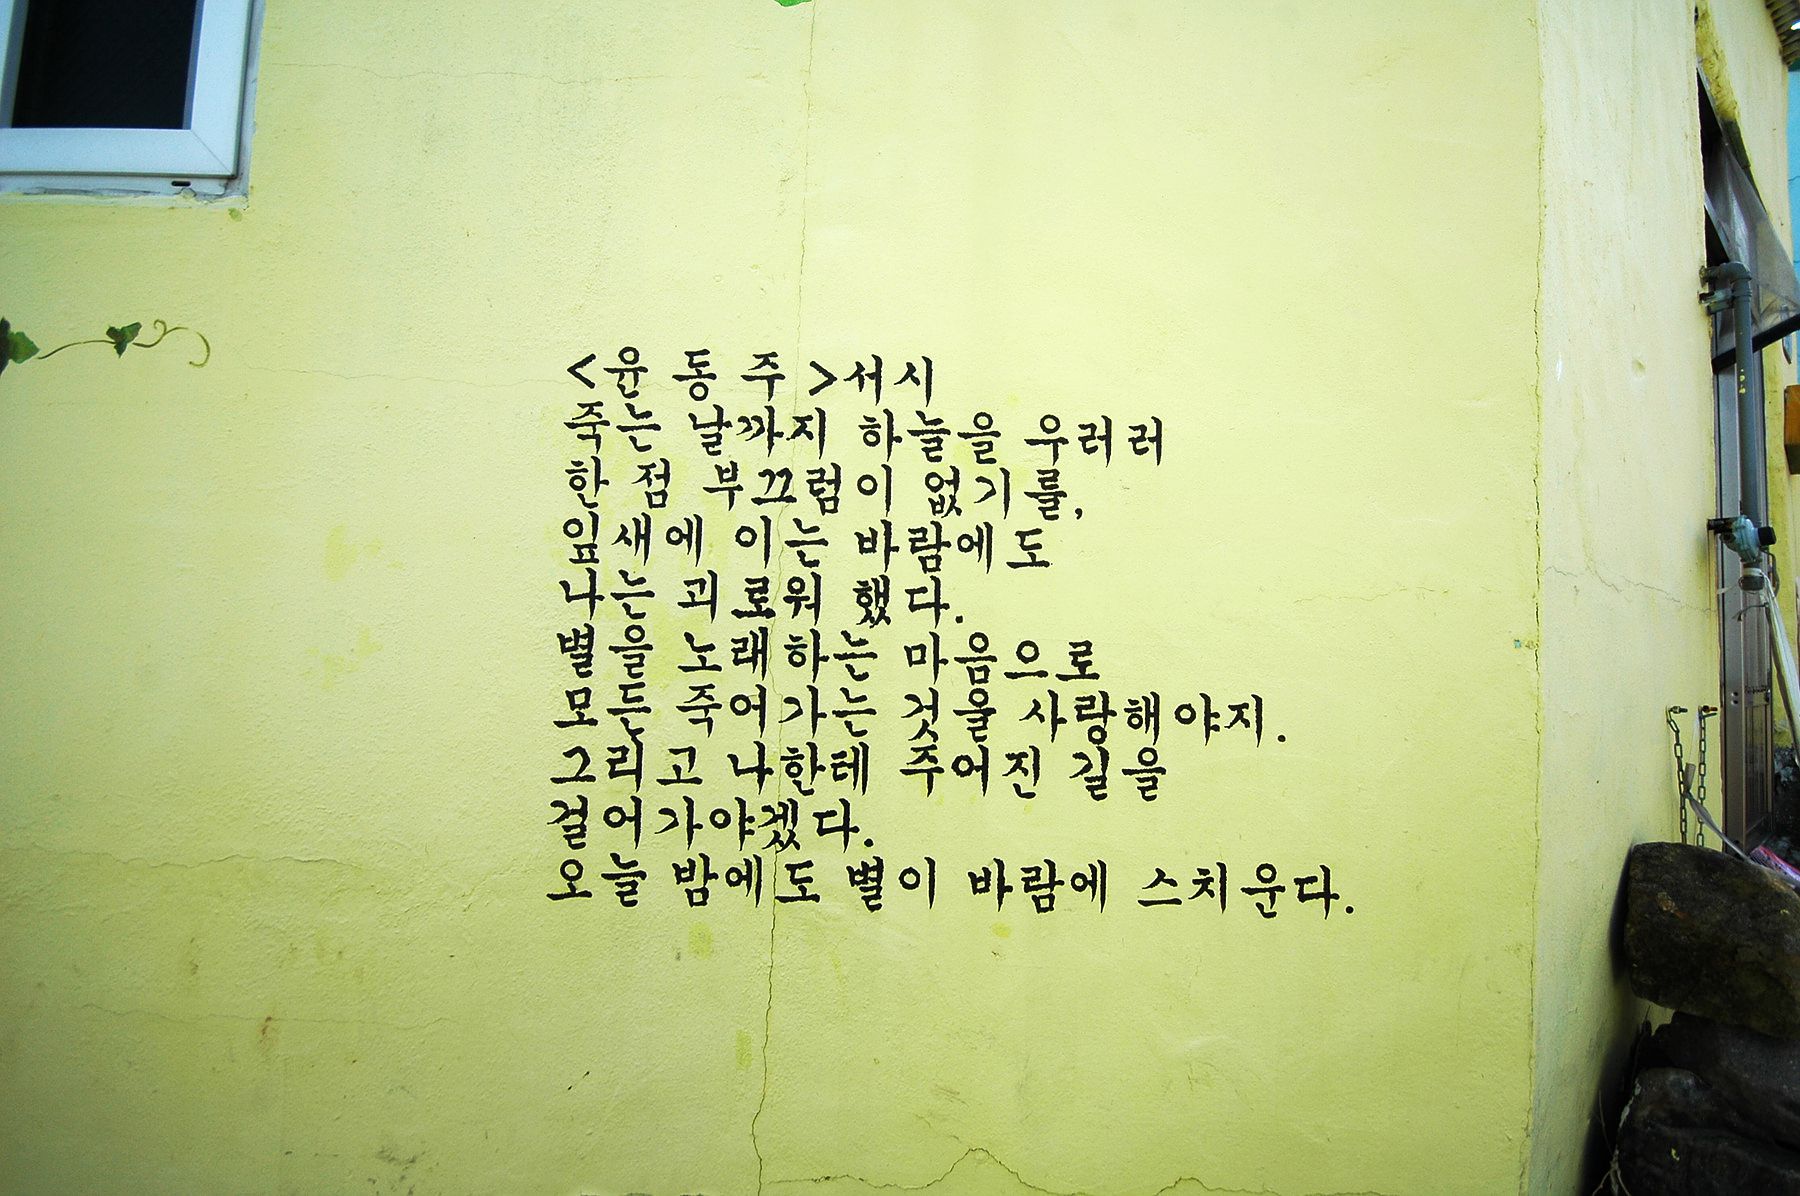 <윤 동 주 >서시
죽는 날까지 하늘을 우러러
한 점 부끄럼이 없기를,
잎새에 이는 바람에도
나는 괴로워 했다.
별을 노래하는 마음으로
모든 죽어가는 것을 사랑해야지.
그리고 나한테 주어진 길을
걸어가야겠다.
오늘 밤에도 별이 바람에 스치운다.